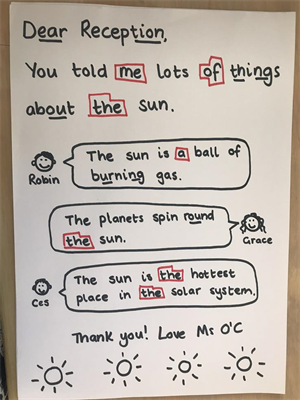 Dear Reception,
You told me lots of things
about the sun.
The sun is a ball of
burning gas.
Robin
The planets spin round
the sun.
Grace
The sun is the hottest
place in the solar system.
Ces
Thank you! Love Ms O'C